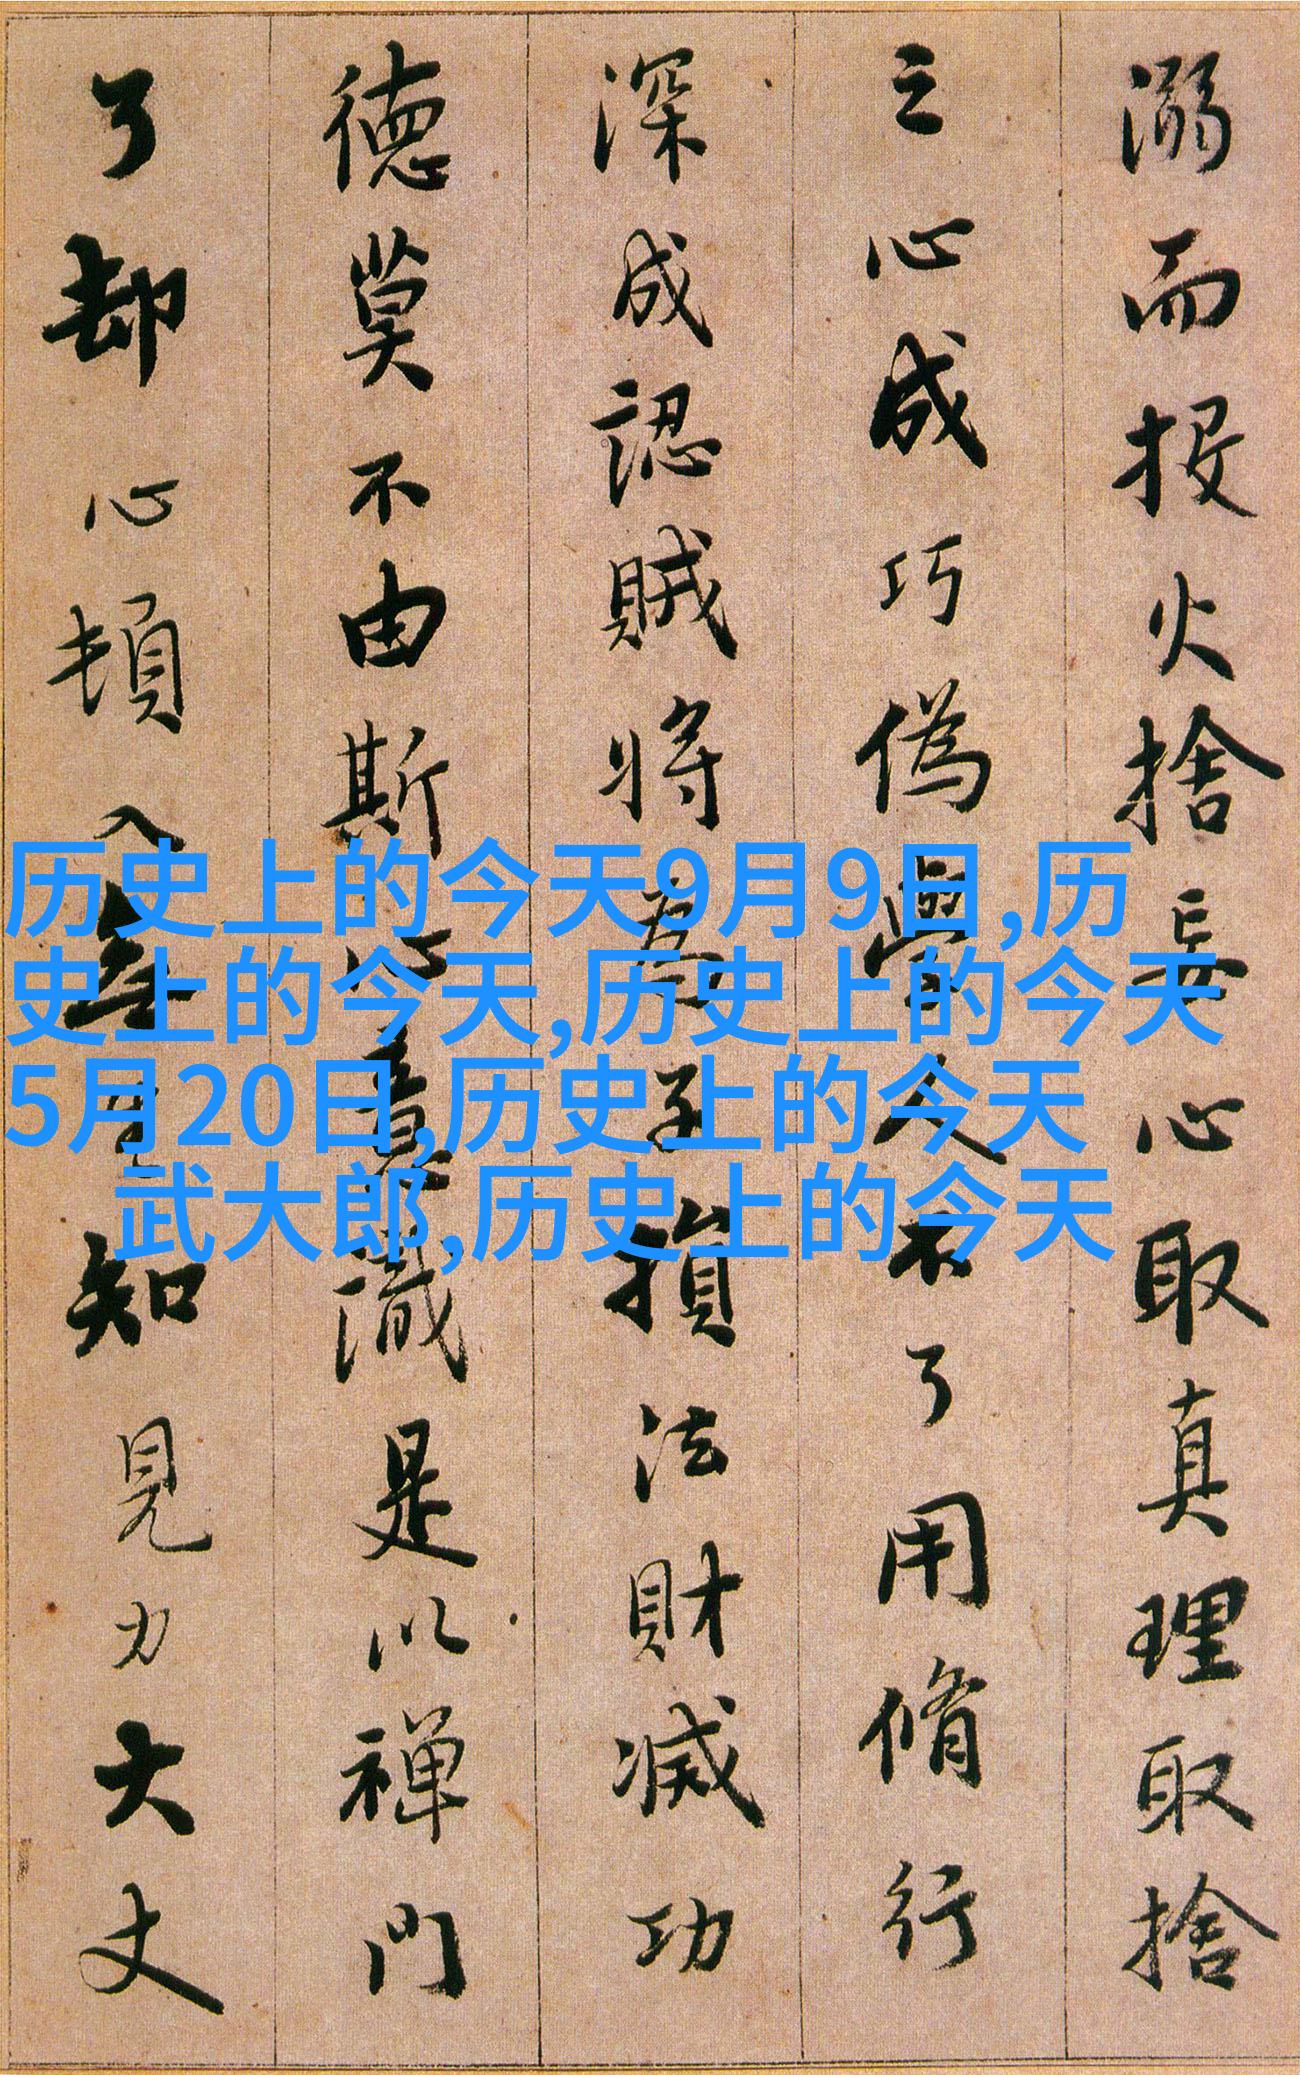 溺而投火捨妄心取真理取捨
之心成巧偽學人不了用脩行
深成認賊將為子損法財滅功
德莫不由斯心意識是以禪門
了却心頓入無生知見力大丈
历史上的今天9月9日,历
史上的今天,历史上的今天
5月20日,历史上的今天
武大郎,历史上的今天